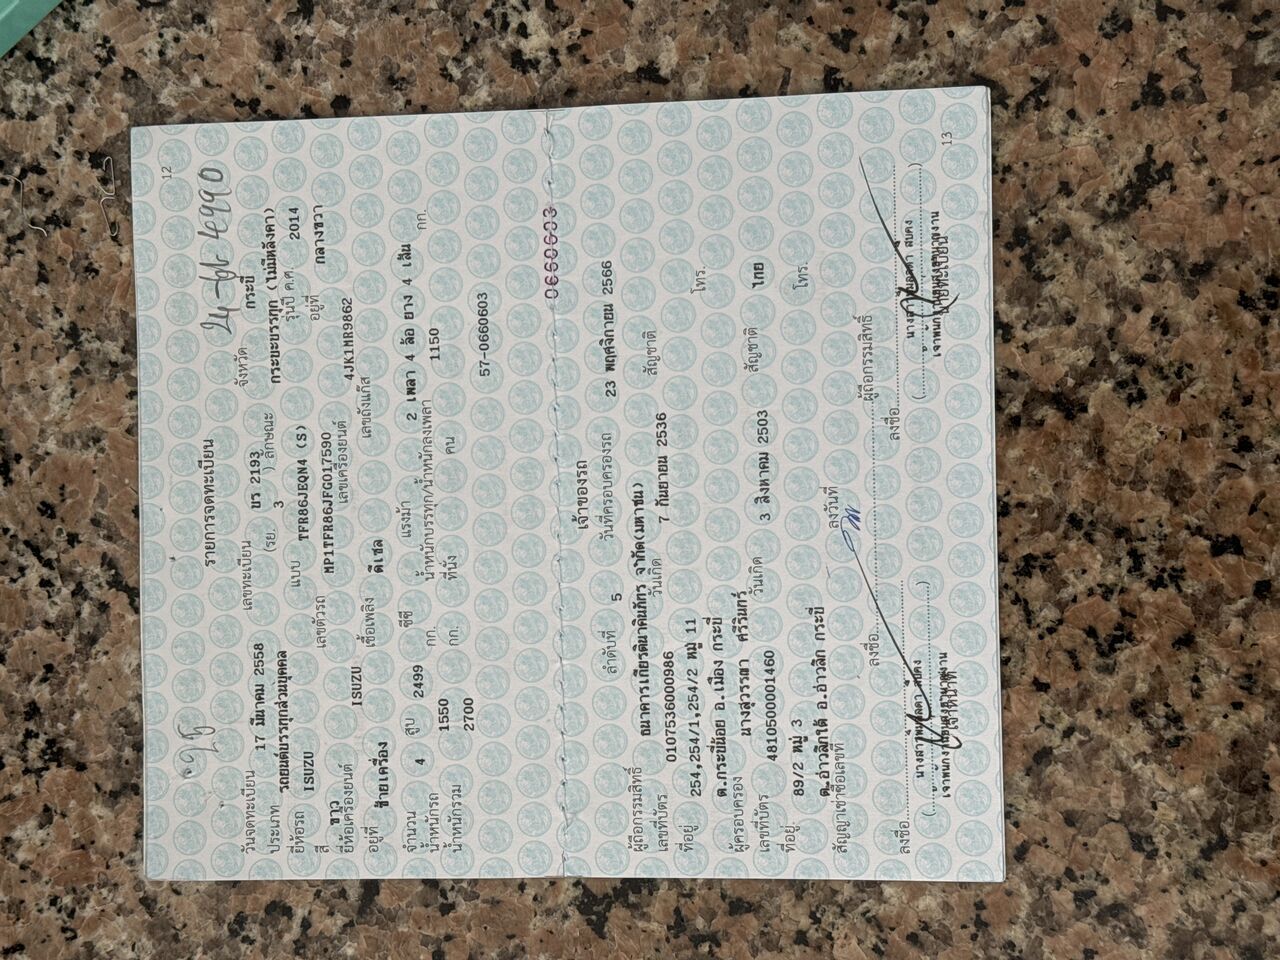 12
24-ต.ค. 4990
รายการจดทะเบียน
วันจดทะเบียน 17 มีนาคม 2558 เลขทะเบียน บร 2193 จังหวัด กระบี่
ประเภท รถยนต์บรรทุกส่วนบุคคล (รย. 3 ) ลักษณะ กระบะบรรทุก (ไม่มีหลังคา)
ยี่ห้อรถ ISUZU แบบ TFR86JEQN4 (S) รุ่นปี ค.ศ. 2014
สี ขาว เลขตัวรถ MP1TFR86JFG017590 อยู่ที่ กลางขวา
ยี่ห้อเครื่องยนต์ ISUZU เลขเครื่องยนต์ 4JK1MR9862
อยู่ที่ ซ้ายเครื่อง เชื้อเพลิง ดีเซล เลขถังแก๊ส
จำนวน 4 สูบ 2499 ซีซี แรงม้า 2 เพลา 4 ล้อ ยาง 4 เส้น
น้ำหนักรถ 1550 กก. น้ำหนักบรรทุก/น้ำหนักลงเพลา 1150 กก.
น้ำหนักรวม 2700 กก. ที่นั่ง คน
57-0660603
0660603
เจ้าของรถ
ลำดับที่ 5 วันที่ครอบครองรถ 23 พฤศจิกายน 2566
ผู้ถือกรรมสิทธิ์ ธนาคารเกียรตินาคินภัทร จำกัด(มหาชน)
เลขที่บัตร 0107536000986 วันเกิด 7 กันยายน 2536 สัญชาติ
ที่อยู่ 254,254/1,254/2 หมู่ 11 โทร.
ต.กระบี่น้อย อ.เมือง กระบี่
ผู้ครอบครอง นางสุวรรณา ศรีรินทร์
เลขที่บัตร 4810500001460 วันเกิด 3 สิงหาคม 2503 สัญชาติ ไทย
ที่อยู่. 89/2 หมู่ 3 โทร.
ต.อ่าวลึกใต้ อ.อ่าวลึก กระบี่
สัญญาเช่าซื้อเลขที่ ลงวันที่
ลงชื่อ ผู้ถือกรรมสิทธิ์
ลงชื่อ ลงชื่อ
เจ้าหน้าที่ นายทะเบียน
13